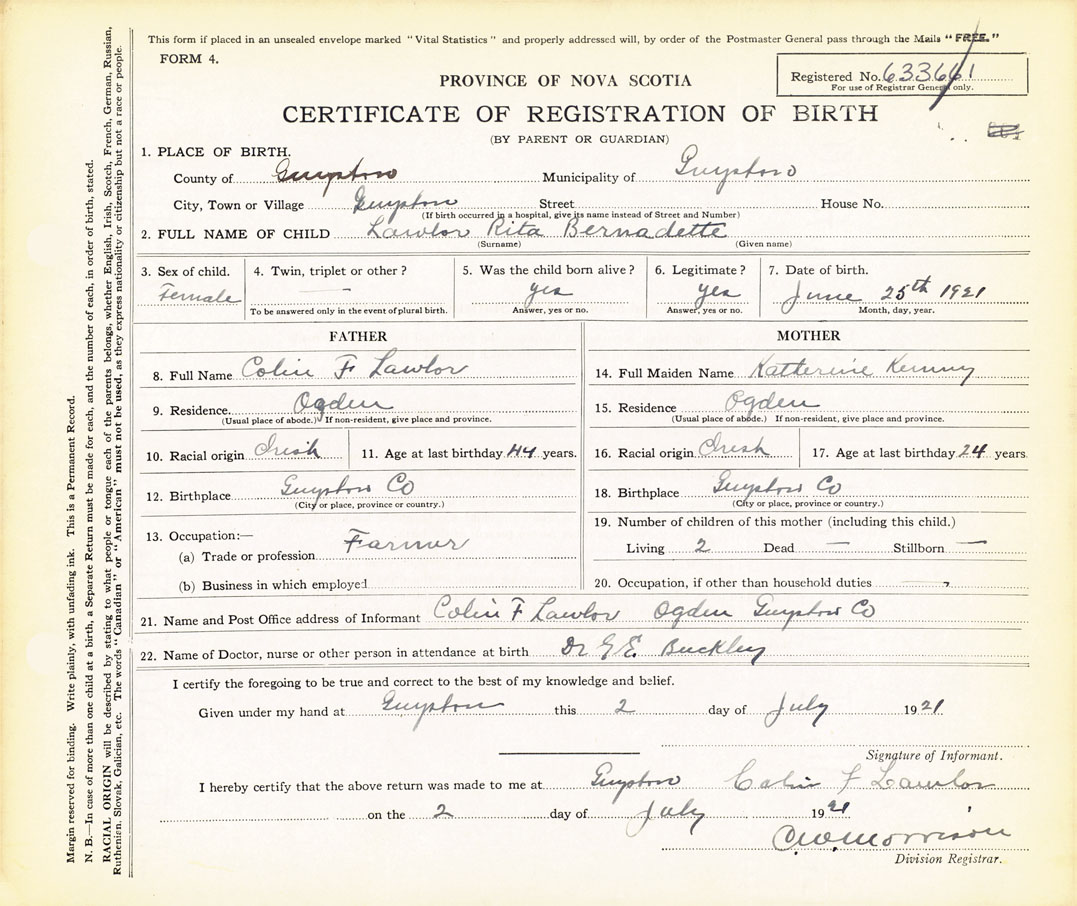 This form if placed in an unsealed envelope marked "Vital Statistics" and properly addressed will, by order of the Postmaster General pass through the Mails "FREE."
FORM 4.
Registered No. 633661
For use of Registrar General only.
PROVINCE OF NOVA SCOTIA
CERTIFICATE OF REGISTRATION OF BIRTH
(BY PARENT OR GUARDIAN)
1. PLACE OF BIRTH.
County of Guysboro Municipality of Guysboro
City, Town or Village Guysboro Street House No.
(If birth occurred in a hospital, give its name instead of Street and Number)
2. FULL NAME OF CHILD Lawlor Rita Bernadette
(Surname) (Given name)
3. Sex of child. 4. Twin, triplet or other? 5. Was the child born alive? 6. Legitimate? 7. Date of birth.
Female — yes yes June 25th 1921
To be answered only in the event of plural birth. Answer, yes or no. Answer, yes or no. Month, day, year.
FATHER
8. Full Name Colin F Lawlor
9. Residence. Ogden
(Usual place of abode.) If non-resident, give place and province.
10. Racial origin Irish 11. Age at last birthday 44 years.
12. Birthplace Guysboro Co
(City or place, province or country.)
13. Occupation:—
(a) Trade or profession Farmer
(b) Business in which employed
MOTHER
14. Full Maiden Name Katherine Kenny
15. Residence Ogden
(Usual place of abode.) If non-resident, give place and province.
16. Racial origin Irish 17. Age at last birthday 24 years.
18. Birthplace Guysboro Co
(City or place, province or country.)
19. Number of children of this mother (including this child.)
Living 2 Dead — Stillborn —
20. Occupation, if other than household duties —
21. Name and Post Office address of Informant Colin F Lawlor Ogden Guysboro Co
22. Name of Doctor, nurse or other person in attendance at birth Dr G E Buckley
I certify the foregoing to be true and correct to the best of my knowledge and belief.
Given under my hand at Guysboro this 2 day of July 1921
Signature of Informant.
I hereby certify that the above return was made to me at Guysboro Colin F Lawlor
on the 2 day of July 1921
C.W. Morrison
Division Registrar.
Margin reserved for binding. Write plainly, with unfading ink. This is a Permanent Record.
N. B.—In case of more than one child at a birth, a Separate Return must be made for each, and the number of each, in order of birth, stated.
RACIAL ORIGIN will be described by stating to what people or tongue each of the parents belongs, whether English, Irish, Scotch, French, German, Russian,
Ruthenian, Slovak, Galician, etc. The words "Canadian" or "American" must not be used, as they express nationality or citizenship but not a race or people.